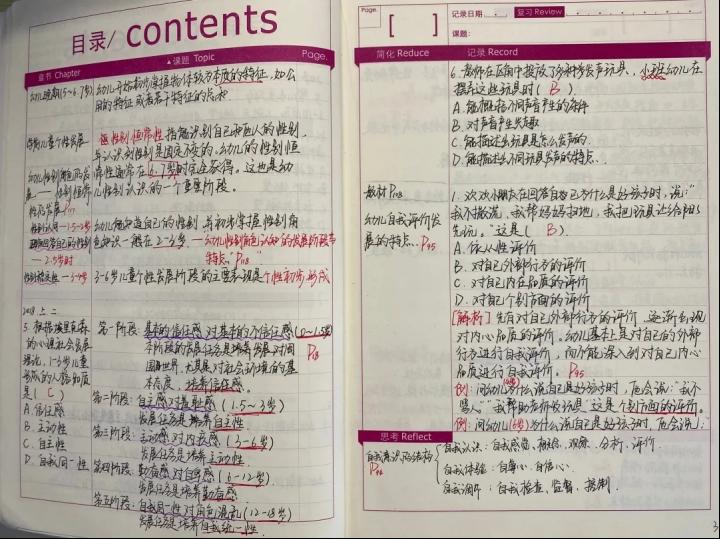 目录/ contents
章节 Chapter
▲课题 Topic
Page.
幼儿晚期(5~6.7岁)
幼儿开始初步掌握物体较为本质的特征，如公
用的特征或若干特征的总和
性别恒常性 指能识别自己和他人的性别，
并认识到性别是固定不变的。幼儿的性别恒
常性通常在6-7岁时完全获得。这也是幼
儿性别认识的一个重要阶段。
性别认同
— 2.5岁时
幼儿能知道自己的性别，并初步掌握性别角
色知识一般在2~3岁。—幼儿性别角色认知的发展阶段与
特点。P118
3-6岁儿童个性发展阶段的主要表现是个性初步形成
2018 上 二
5. 根据埃里克森
的心理社会发展
理论，1-3岁儿童
形成的人格品质
是( C )
A. 信任感
B. 主动性
C. 自主性
D. 自我同一性
第一阶段：基本的信任感对基本的不信任感(0~1.5岁)
本阶段的发展任务是培养发展对周
围世界，尤其是对社会环境的基
本态度，培养信任感。
第二阶段：自主感对羞耻感(1.5~3岁)
发展任务是培养自主性
第三阶段：主动感对内疚感(3-6岁)
发展任务是培养主动性
第四阶段：勤奋感对自卑感(6-12岁)
发展任务是培养勤奋感
第五阶段：自我同一性对角色混乱(12~18岁)
发展任务是培养自我统一性
Page.
[ ]
记录日期.
复习 Review
课题:
简化 Reduce
记录 Record
6. 教师在区角中投放了多种发声玩具，小班幼儿在
摆弄这些玩具时( B )
A. 能概括不同声音产生的条件
B. 对声音产生兴趣
C. 能描述出玩具是怎么发声的.
D. 能描述出不同玩具发声的特点.
教材P118
幼儿自我评价发
展的特点. P95
1. 欢欢小朋友在回答自己为什么是好孩子时，说："
我不撒谎，我帮妈妈扫地，我把玩具让给阳阳
先玩。"这是( B )
A. 依从性评价
B. 对自己外部行为的评价
C. 对自己内在品质的评价
D. 对自己个别方面的评价
[解析] 先有对自己外部行为的评价，逐渐出现
对内心品质的评价。幼儿基本上是对自己的外部
行为进行自我评价，而不能深入到对自己内心
品质进行自我评价。P95
例：问幼儿为什么说自己是好孩子时，他会说："我不
骂人""我帮助老师收玩具"这是个别方面的评价。
例：问幼儿(6岁)为什么说自己是好孩子时，他会说：
思考 Reflect
自我意识的结构
P94
自我认识：自我感觉、概念、观察、分析、评价
自我体验：自尊心、自信心.
自我调节：自我检查、监督、控制.
3